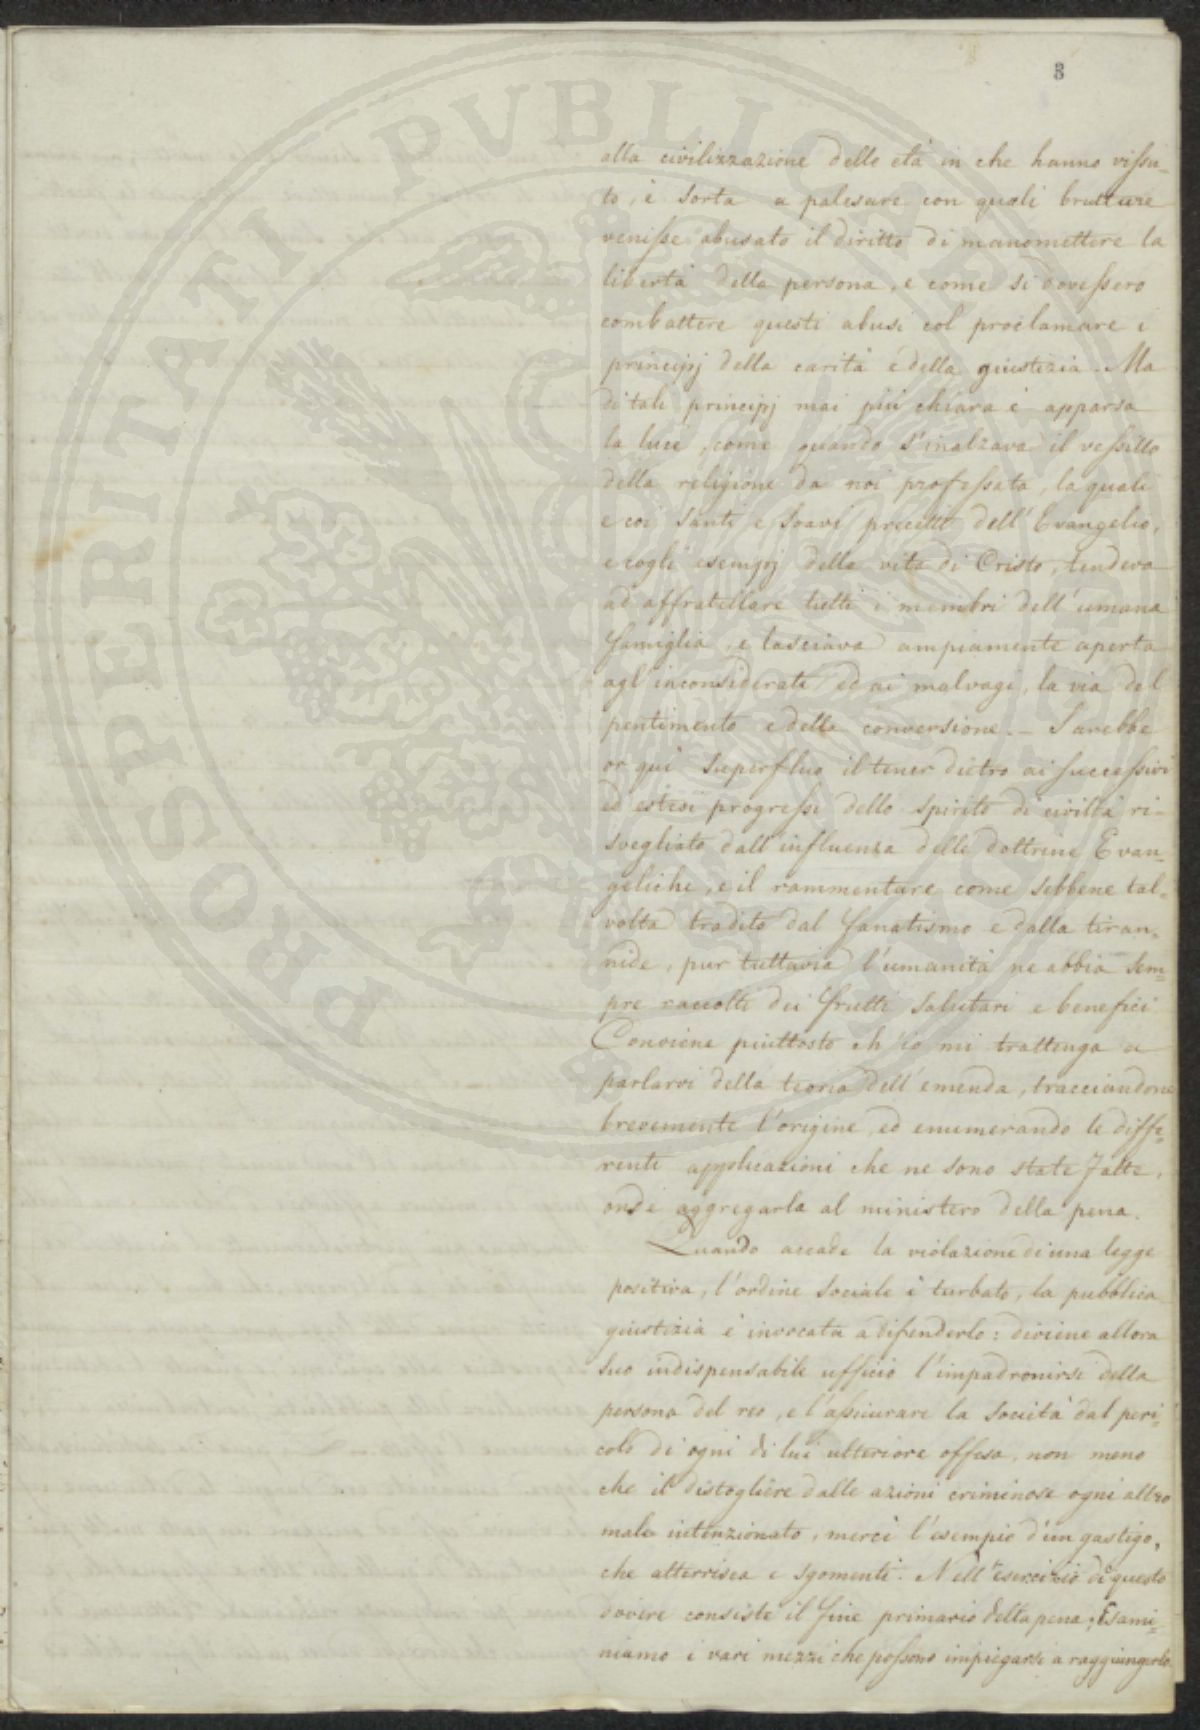 PROSPERITATI PVBLICAE AVGENDAE
3
alla civilizzazione delle età in che hanno vissu-
to, è sorta a palesare con quali brutture
venisse abusato il diritto di manomettere la
libertà della persona, e come si dovessero
combattere questi abusi col proclamare i
principj della carità e della giustizia. Ma
di tali principj mai più chiara è apparsa
la luce, come quando s'inalzava il vessillo
della religione da noi professata, la quale
e coi santi e soavi precetti dell'Evangelio,
e cogli esempj della vita di Cristo, tendeva
ad affratellare tutti i membri dell'umana
famiglia, e lasciava ampiamente aperta
agl'inconsiderati ed ai malvagi, la via del
pentimento e della conversione. – Sarebbe
or qui superfluo il tener dietro ai successivi
ed estesi progressi dello spirito di civiltà ri-
svegliato dall'influenza delle dottrine Evan-
geliche, e il rammentare come sebbene tal-
volta tradito dal fanatismo e dalla tiran-
nide, pur tuttavia l'umanità ne abbia sem-
pre raccolti dei frutti salutari e benefici
Conviene piuttosto ch'io mi trattenga a
parlarvi della teoria dell'emenda, tracciandone
brevemente l'origine, ed enumerando le diffe-
renti applicazioni che ne sono state fatte,
onde aggregarla al ministero della pena.
Quando accade la violazione di una legge
positiva, l'ordine sociale è turbato, la pubblica
giustizia è invocata a difenderlo: diviene allora
suo indispensabile ufficio l'impadronirsi della
persona del reo, e l'assicurare la società dal peri-
colo di ogni di lui ulteriore offesa, non meno
che il distogliere dalle azioni criminose ogni altro
male intenzionato, mercè l'esempio d'un gastigo,
che atterrisca e sgomenti. Nell'esercizio di questo
dovere consiste il fine primario della pena; Esami-
niamo i vari mezzi che possono impiegarsi a raggiungerlo.